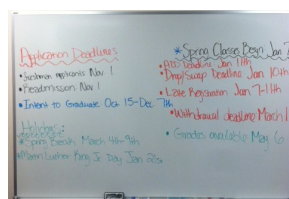 Application Deadlines
• Freshman applicants Nov. 1
• Readmission Nov. 1
• Intent to Graduate Oct 15-Dec 7th
Holidays:
• Spring Break March 4th-9th
• Martin Luther King Jr. Day Jan 21st
* Spring Classes Begin Jan 7
• ADD Deadline Jan 11th
• Drop/Swap Deadline Jan 10th
• Late Registration Jan 7-11th
• Withdrawal deadline March 1
• Grades available May 6